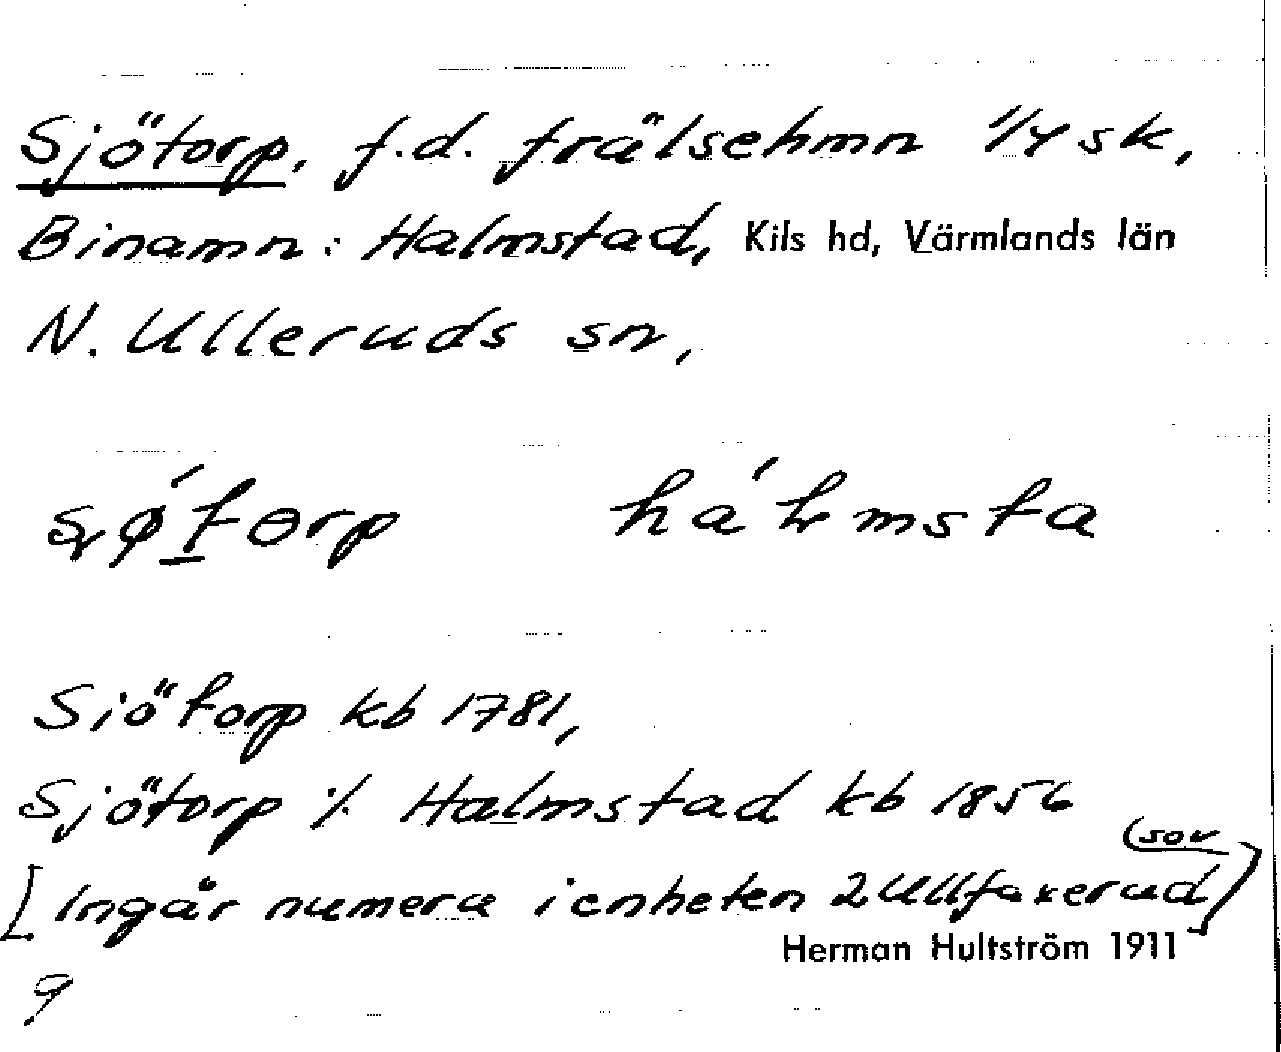 Sjötorp, f.d. frälsehmn 1/4 sk,
Binamn: Halmstad, Kils hd, Värmlands län
N. Ulleruds sn,
torp hálmsta
Siötorp kb 1781,
Sjötorp ./. Halmstad kb 1856
(sov
[Ingår numera i enheten 2 Ullfaxerud)]
Herman Hultström 1911
9